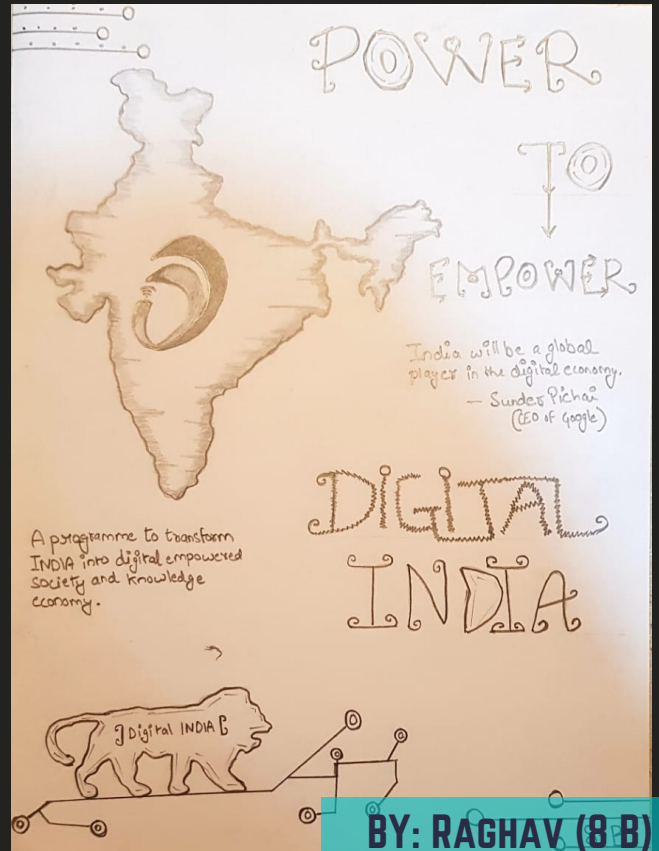 POWER
TO
EMPOWER
India will be a global
player in the digital economy.
- Sunder Pichai
(CEO of Google)
DIGITAL
INDIA
A programme to transform
INDIA into digital empowered
society and knowledge
economy.
Digital INDIA
BY: RAGHAV (8 B)